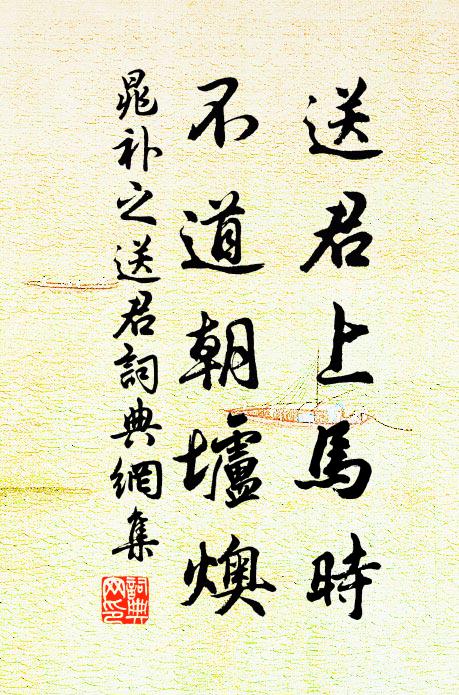 送君上馬時
不道朝壚燠
晁补之送君詞典網集
詞典
网印